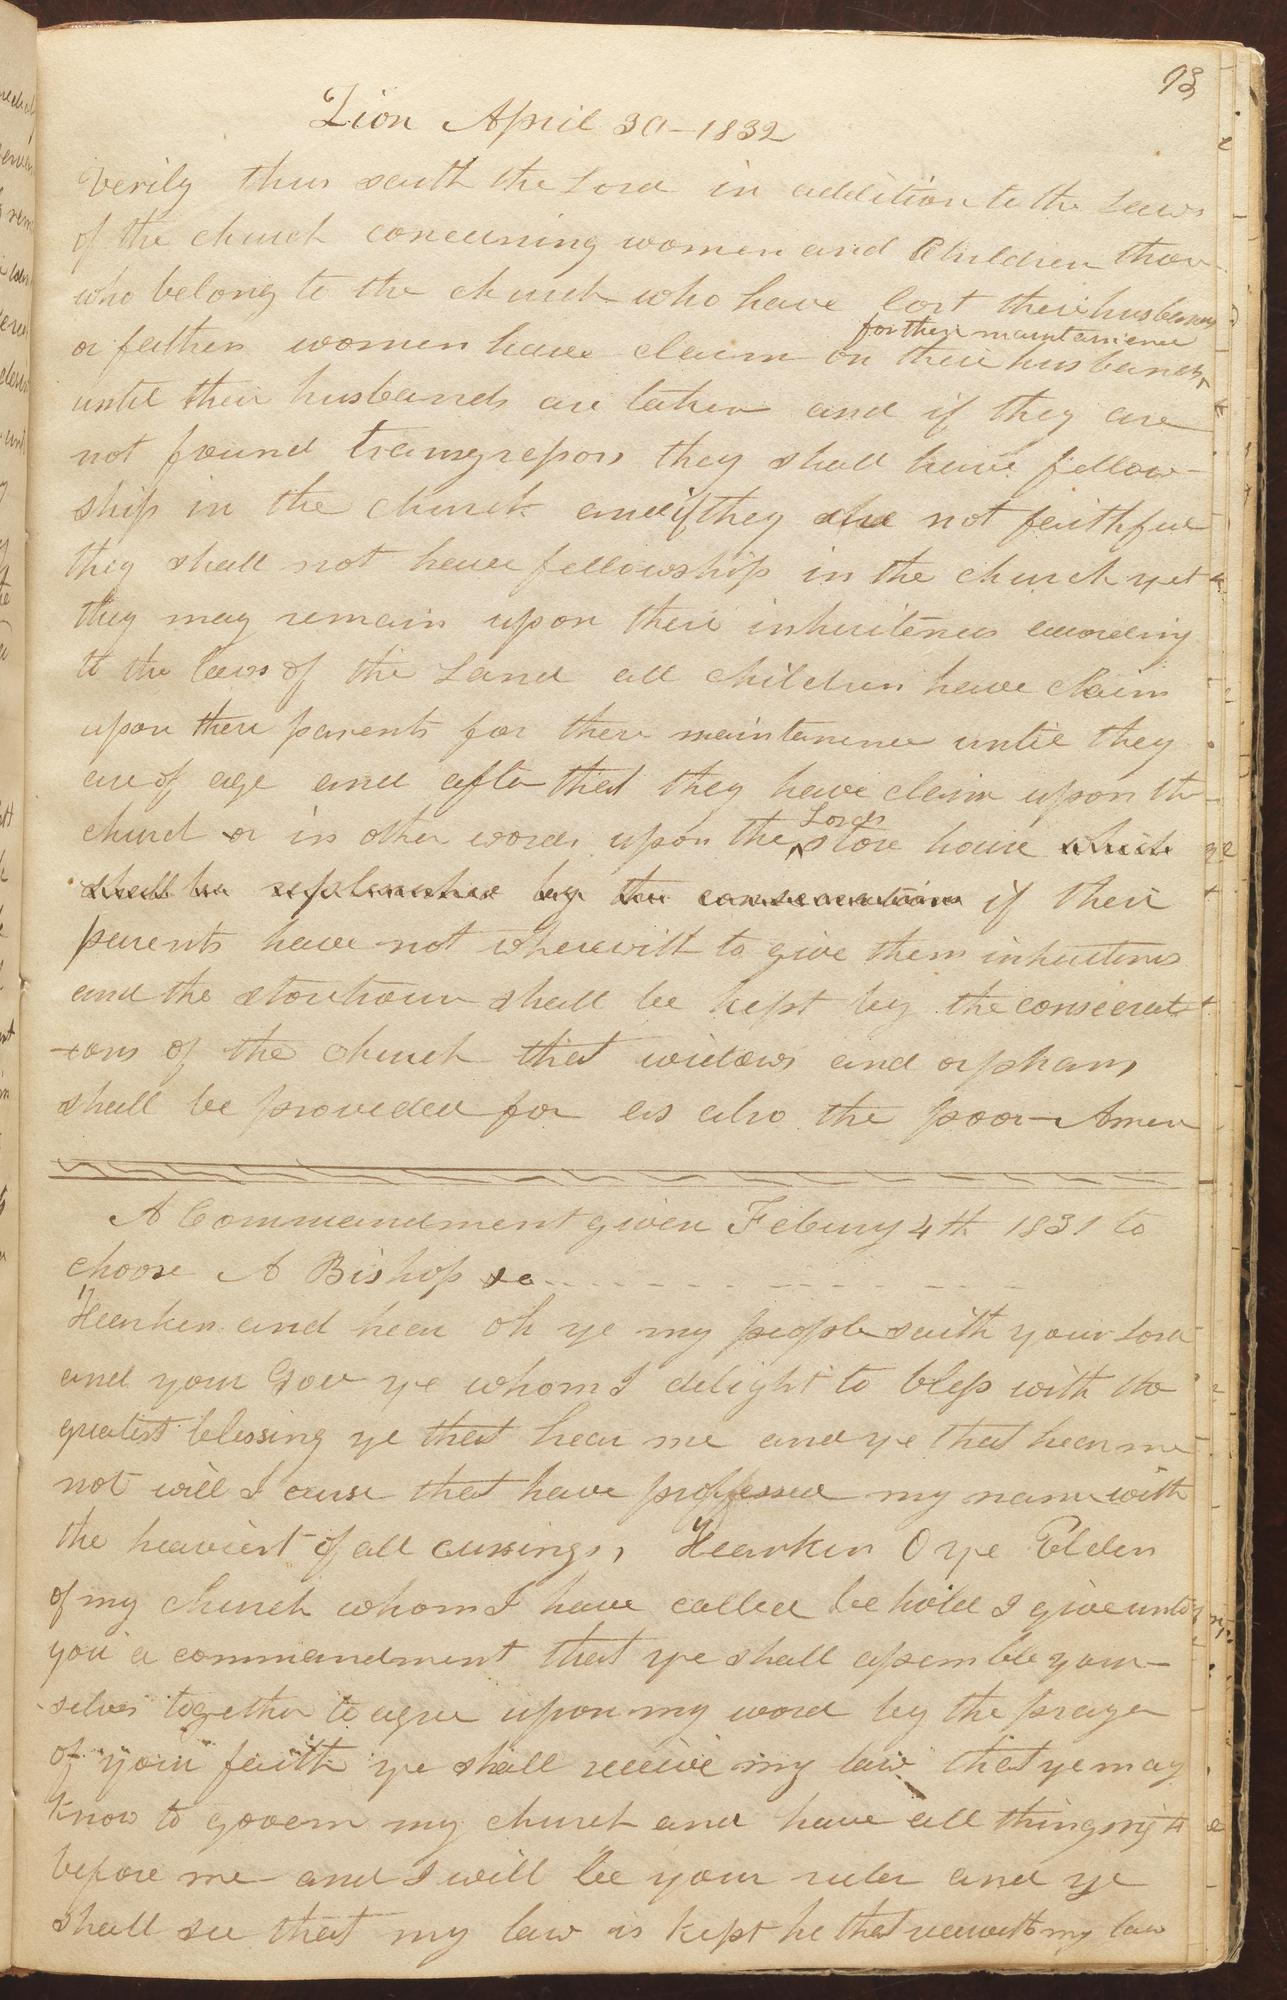 93
Zion April 30–1832
Verily thus saith the Lord in addition to the Laws
of the church concerning women and Children those
who belong to the church who have lost their husbands
or fathers women have claim on their husbands
for their maintainence
until their husbands are taken and if they are
not found transgressors they shall have fellow-
ship in the church and if they are not faithful
they shall not have fellowship in the church yet
they may remain upon their inheritences according
to the laws of the Land all children have claim
upon there parents for there maintanence until they
are of age and after that they have claim upon the
church or in other words upon the Lords store house which
shall be replenished by the consecrations if their
parents have not wherewith to give them inheritences
and the storehouse shall be kept by the consecrat
-ions of the church that widows and orphans
shall be provided for as also the poor – Amen
A Commandment given Febuary 4th 1831 to
choose A Bishop &c
Hearken and hear oh ye my people saith your Lord
and your God ye whom I delight to bless with the
greatest blessing ye that hear me and ye that hear me
not will I curse that have professed my name with
the heaviest of all cursings, Hearken O ye Elders
of my church whom I have called behold I give unto
you a commandment that ye shall assemble your-
-selves together to agree upon my word by the prayer
of your faith ye shall receive my law that ye may
know to govern my church and have all things right
before me and I will be your ruler and ye
shall see that my law is kept he that receiveth my law